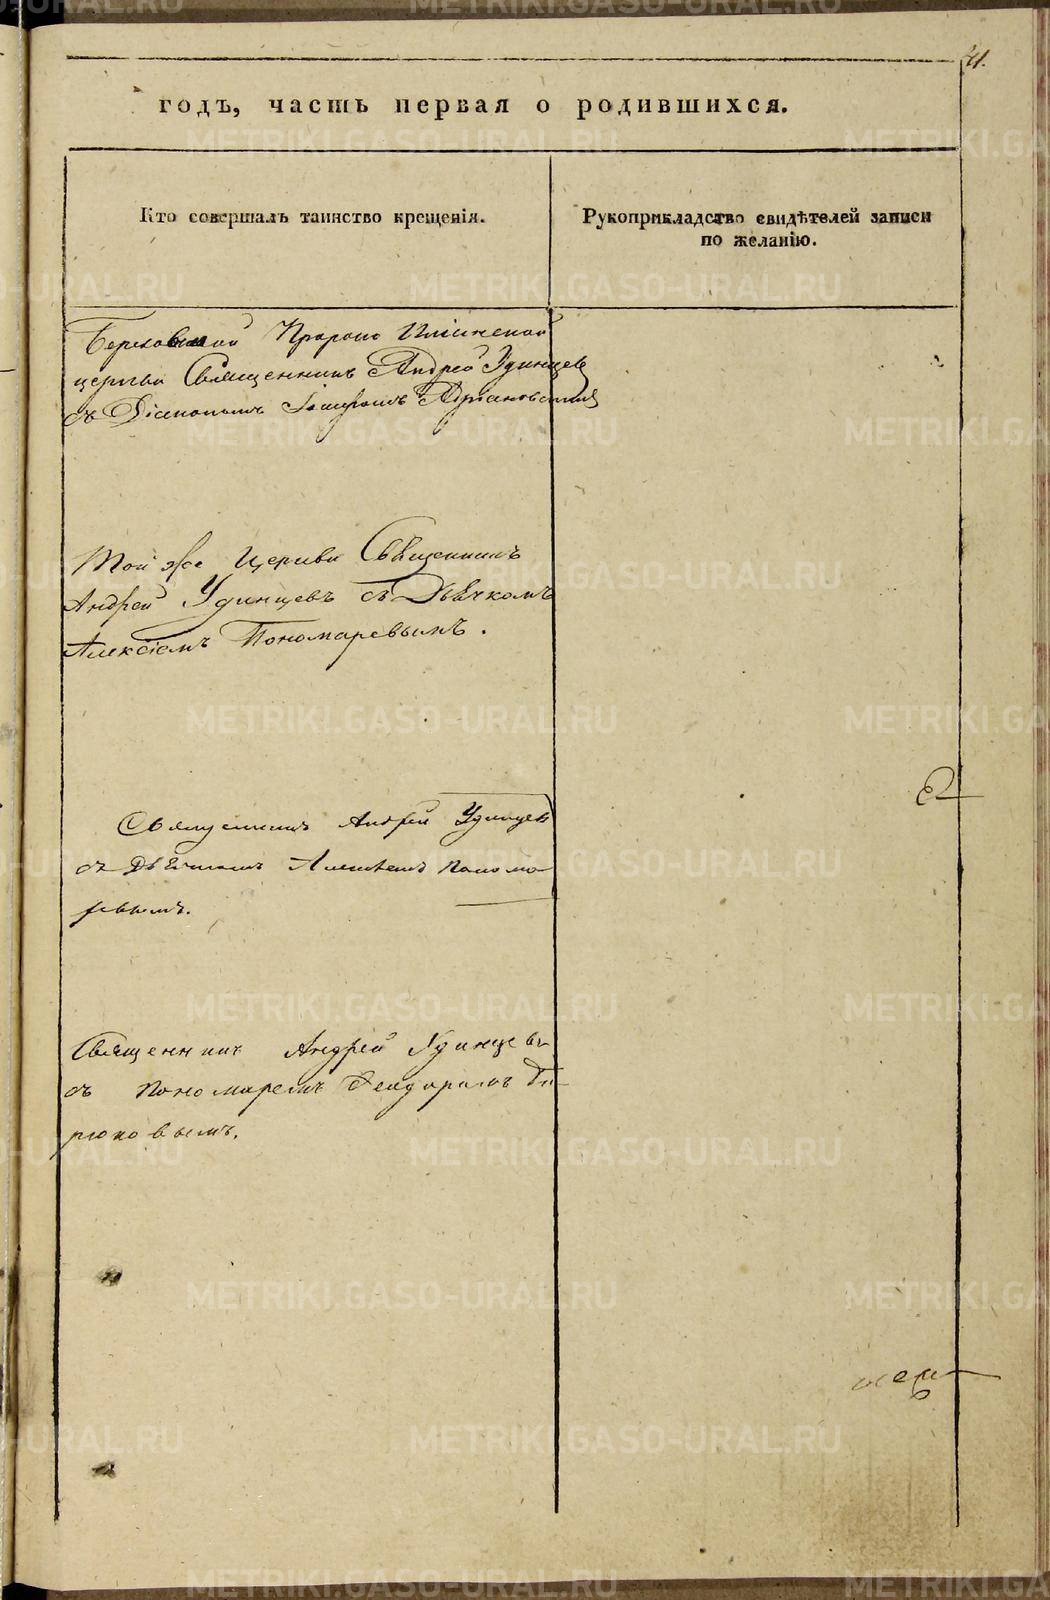 41.
годъ, часть первая о родившихся.
Кто совершалъ таинство крещенія.
Рукоприкладство свидѣтелей записи
по желанію.
Пророко Ильинской
церкви Священникъ Андрей Удинцевъ
съ Діакономъ Адріановскимъ
Той же Церкви Священникъ
Андрей Удинцевъ съ Дьячкомъ
Алексіемъ Пономаревымъ.
Священникъ Андрей Удинцевъ
съ Дьячкомъ Алексіемъ Понома-
ревымъ.
Священникъ Андрей Удинцевъ
съ Пономаремъ Феодоромъ Би-
рюковымъ.
METRIKI.GASO-URAL.RU